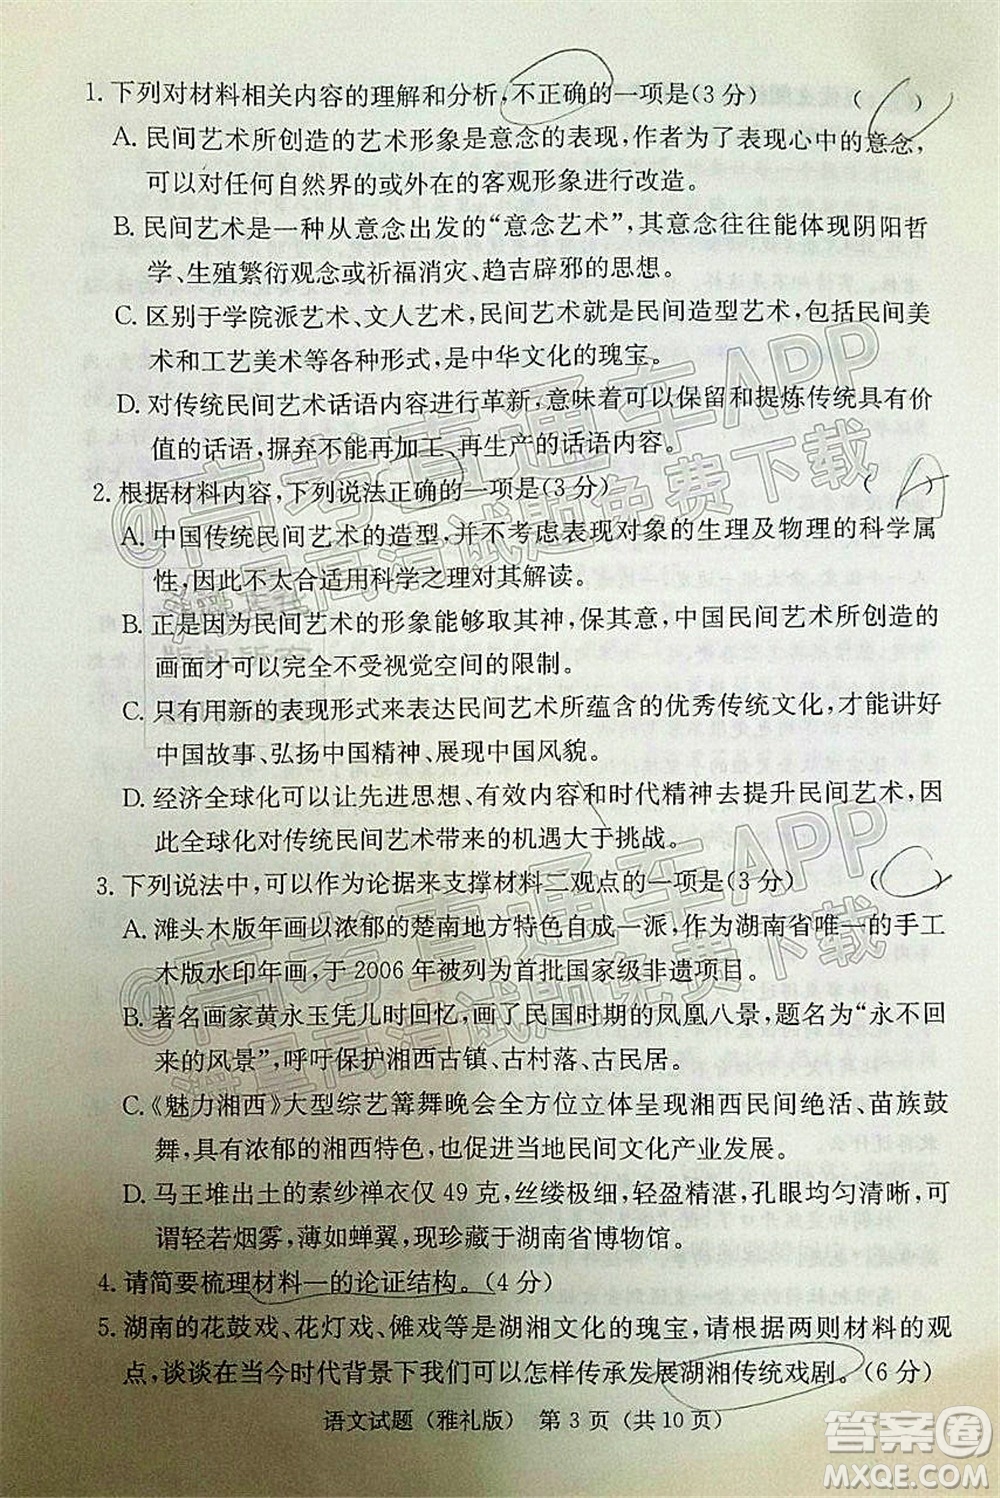 1. 下列对材料相关内容的理解和分析,不正确的一项是(3分) ( )
A. 民间艺术所创造的艺术形象是意念的表现,作者为了表现心中的意念,
可以对任何自然界的或外在的客观形象进行改造。
B. 民间艺术是一种从意念出发的“意念艺术”,其意念往往能体现阴阳哲
学、生殖繁衍观念或祈福消灾、趋吉辟邪的思想。
C. 区别于学院派艺术、文人艺术,民间艺术就是民间造型艺术,包括民间美
术和工艺美术等各种形式,是中华文化的瑰宝。
D. 对传统民间艺术话语内容进行革新,意味着可以保留和提炼传统具有价
值的话语,摒弃不能再加工、再生产的话语内容。
2. 根据材料内容,下列说法正确的一项是(3分) ( A )
A. 中国传统民间艺术的造型,并不考虑表现对象的生理及物理的科学属
性,因此不太合适用科学之理对其解读。
B. 正是因为民间艺术的形象能够取其神,保其意,中国民间艺术所创造的
画面才可以完全不受视觉空间的限制。
C. 只有用新的表现形式来表达民间艺术所蕴含的优秀传统文化,才能讲好
中国故事、弘扬中国精神、展现中国风貌。
D. 经济全球化可以让先进思想、有效内容和时代精神去提升民间艺术,因
此全球化对传统民间艺术带来的机遇大于挑战。
3. 下列说法中,可以作为论据来支撑材料二观点的一项是(3分) ( C )
A. 滩头木版年画以浓郁的楚南地方特色自成一派,作为湖南省唯一的手工
木版水印年画,于2006年被列为首批国家级非遗项目。
B. 著名画家黄永玉凭儿时回忆,画了民国时期的凤凰八景,题名为“永不回
来的风景”,呼吁保护湘西古镇、古村落、古民居。
C. 《魅力湘西》大型综艺篝舞晚会全方位立体呈现湘西民间绝活、苗族鼓
舞,具有浓郁的湘西特色,促进当地民间文化产业发展。
D. 马王堆出土的素纱禅衣仅49克,丝缕极细,轻盈精湛,孔眼均匀清晰,可
谓轻若烟雾,薄如蝉翼,现珍藏于湖南省博物馆。
4. 请简要梳理材料一的论证结构。(4分)
5. 湖南的花鼓戏、花灯戏、傩戏等是湖湘文化的瑰宝,请根据两则材料的观
点,谈谈在当今时代背景下我们可以怎样传承发展湖湘传统戏剧。(6分)
语文试题(雅礼版) 第3页(共10页)
@高考直通车APP
海量高清试题免费下载
版权所有
@高考直通车APP
海量高清试题免费下载
答案圈
MXQE.COM